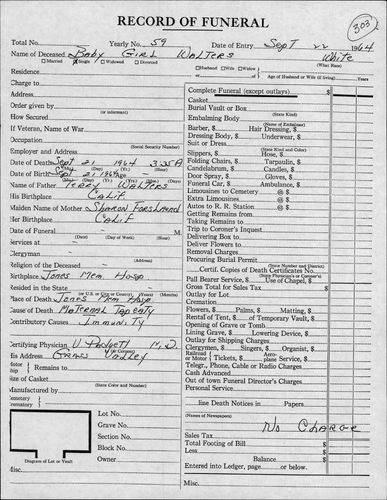 RECORD OF FUNERAL
303
Total No. Yearly No. 59 Date of Entry Sept 22 1964
Name of Deceased Baby Girl Walters White
Married Single Widowed Divorced Husband Wife Widow (What Race)
Residence of Age of Husband or Wife (if living) Years
Charge to
Address
Order given by (or informant)
How Secured
If Veteran, Name of War
Occupation (Social Security Number)
Employer and Address
Date of Death Sept 21 1964 3:35 A
Date of Birth Sept 21 1964
(Day) (Yr.) (Hour)
Name of Father Terry Walters
His Birthplace Calif
Maiden Name of Mother Sharon
Her Birthplace Calif
Date of Funeral M.
(Date) (Day of Week) (Hour)
Services at
Clergyman
Religion of the Deceased
Birthplace Jones Mem. Hosp
Resided in the State
(or U.S. or City or County) (Years) (Months)
Place of Death Jones Mem Hosp
Cause of Death Maternal
Contributory Causes Immunity
Certifying Physician M.D.
(or Coroner)
His Address Grass Valley
Remains to
Size of Casket
(State Color and Number)
Manufactured by
Cemetery
Crematory
Lot No.
Grave No.
Section No.
Block No.
Owner
Diagram of Lot or Vault
Misc.
Complete Funeral (except outlays) $
Casket
Burial Vault or Box
(State Kind)
Embalming Body
(Name of Embalmer)
Barber, $ Hair Dressing, $
Dressing Body, $ Underwear, $
Suit or Dress
(State Kind and Color)
Slippers, $ Hose, $
Folding Chairs, $ Tarpaulin, $
Candelabrum, $ Candles, $
Door Spray, $ Gloves, $
Funeral Car, $ Ambulance, $
Limousines to Cemetery @ $
Extra Limousines @ $
Autos to R. R. Station @ $
Getting Remains from
Taking Remains to
Trip to Coroner's Inquest
Delivering Box to
Deliver Flowers to
Removal Charges
Procuring Burial Permit
(State Number and District)
Certif. Copies of Death Certificate No.
(State Physician's or Coroner's)
Pall Bearer Service, $ Use of Chapel, $
Gross Total for Sales Tax $
Outlay for Lot
Cremation
Flowers, $ Palms, $ Matting, $
Rental of Tent, $ of Temporary Vault, $
Opening of Grave or Tomb
Lining Grave, $ Lowering Device, $
Outlay for Shipping Charges
Clergymen, $ Singers, $ Organist, $
Railroad or Motor Tickets, $ Aeroplane Service, $
Telegr., Phone, Cable or Radio Charges
Cash Advanced
Out of town Funeral Director's Charges
Personal Service
line Death Notices in Papers
(Names of Newspapers)
No Charge
Sales Tax
Total Footing of Bill $
Less $
Balance $
Entered into Ledger, page or below.
Misc.